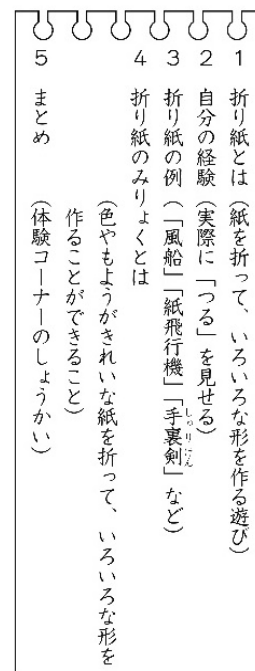 1 折り紙とは(紙を折って、いろいろな形を作る遊び)
2 自分の経験(実際に「つる」を見せる)
3 折り紙の例(「風船」「紙飛行機」「手裏剣」など)
しゅりけん
4 折り紙のみりょくとは
(色やもようがきれいな紙を折って、いろいろな形を
作ることができること)
5 まとめ (体験コーナーのしょうかい)